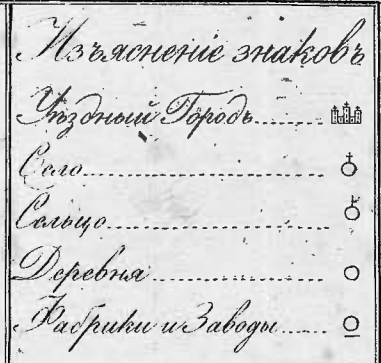 Изъясненіе знаковъ
Уѣздный Городъ
Село
Сельцо
Деревня
Фабрики и Заводы